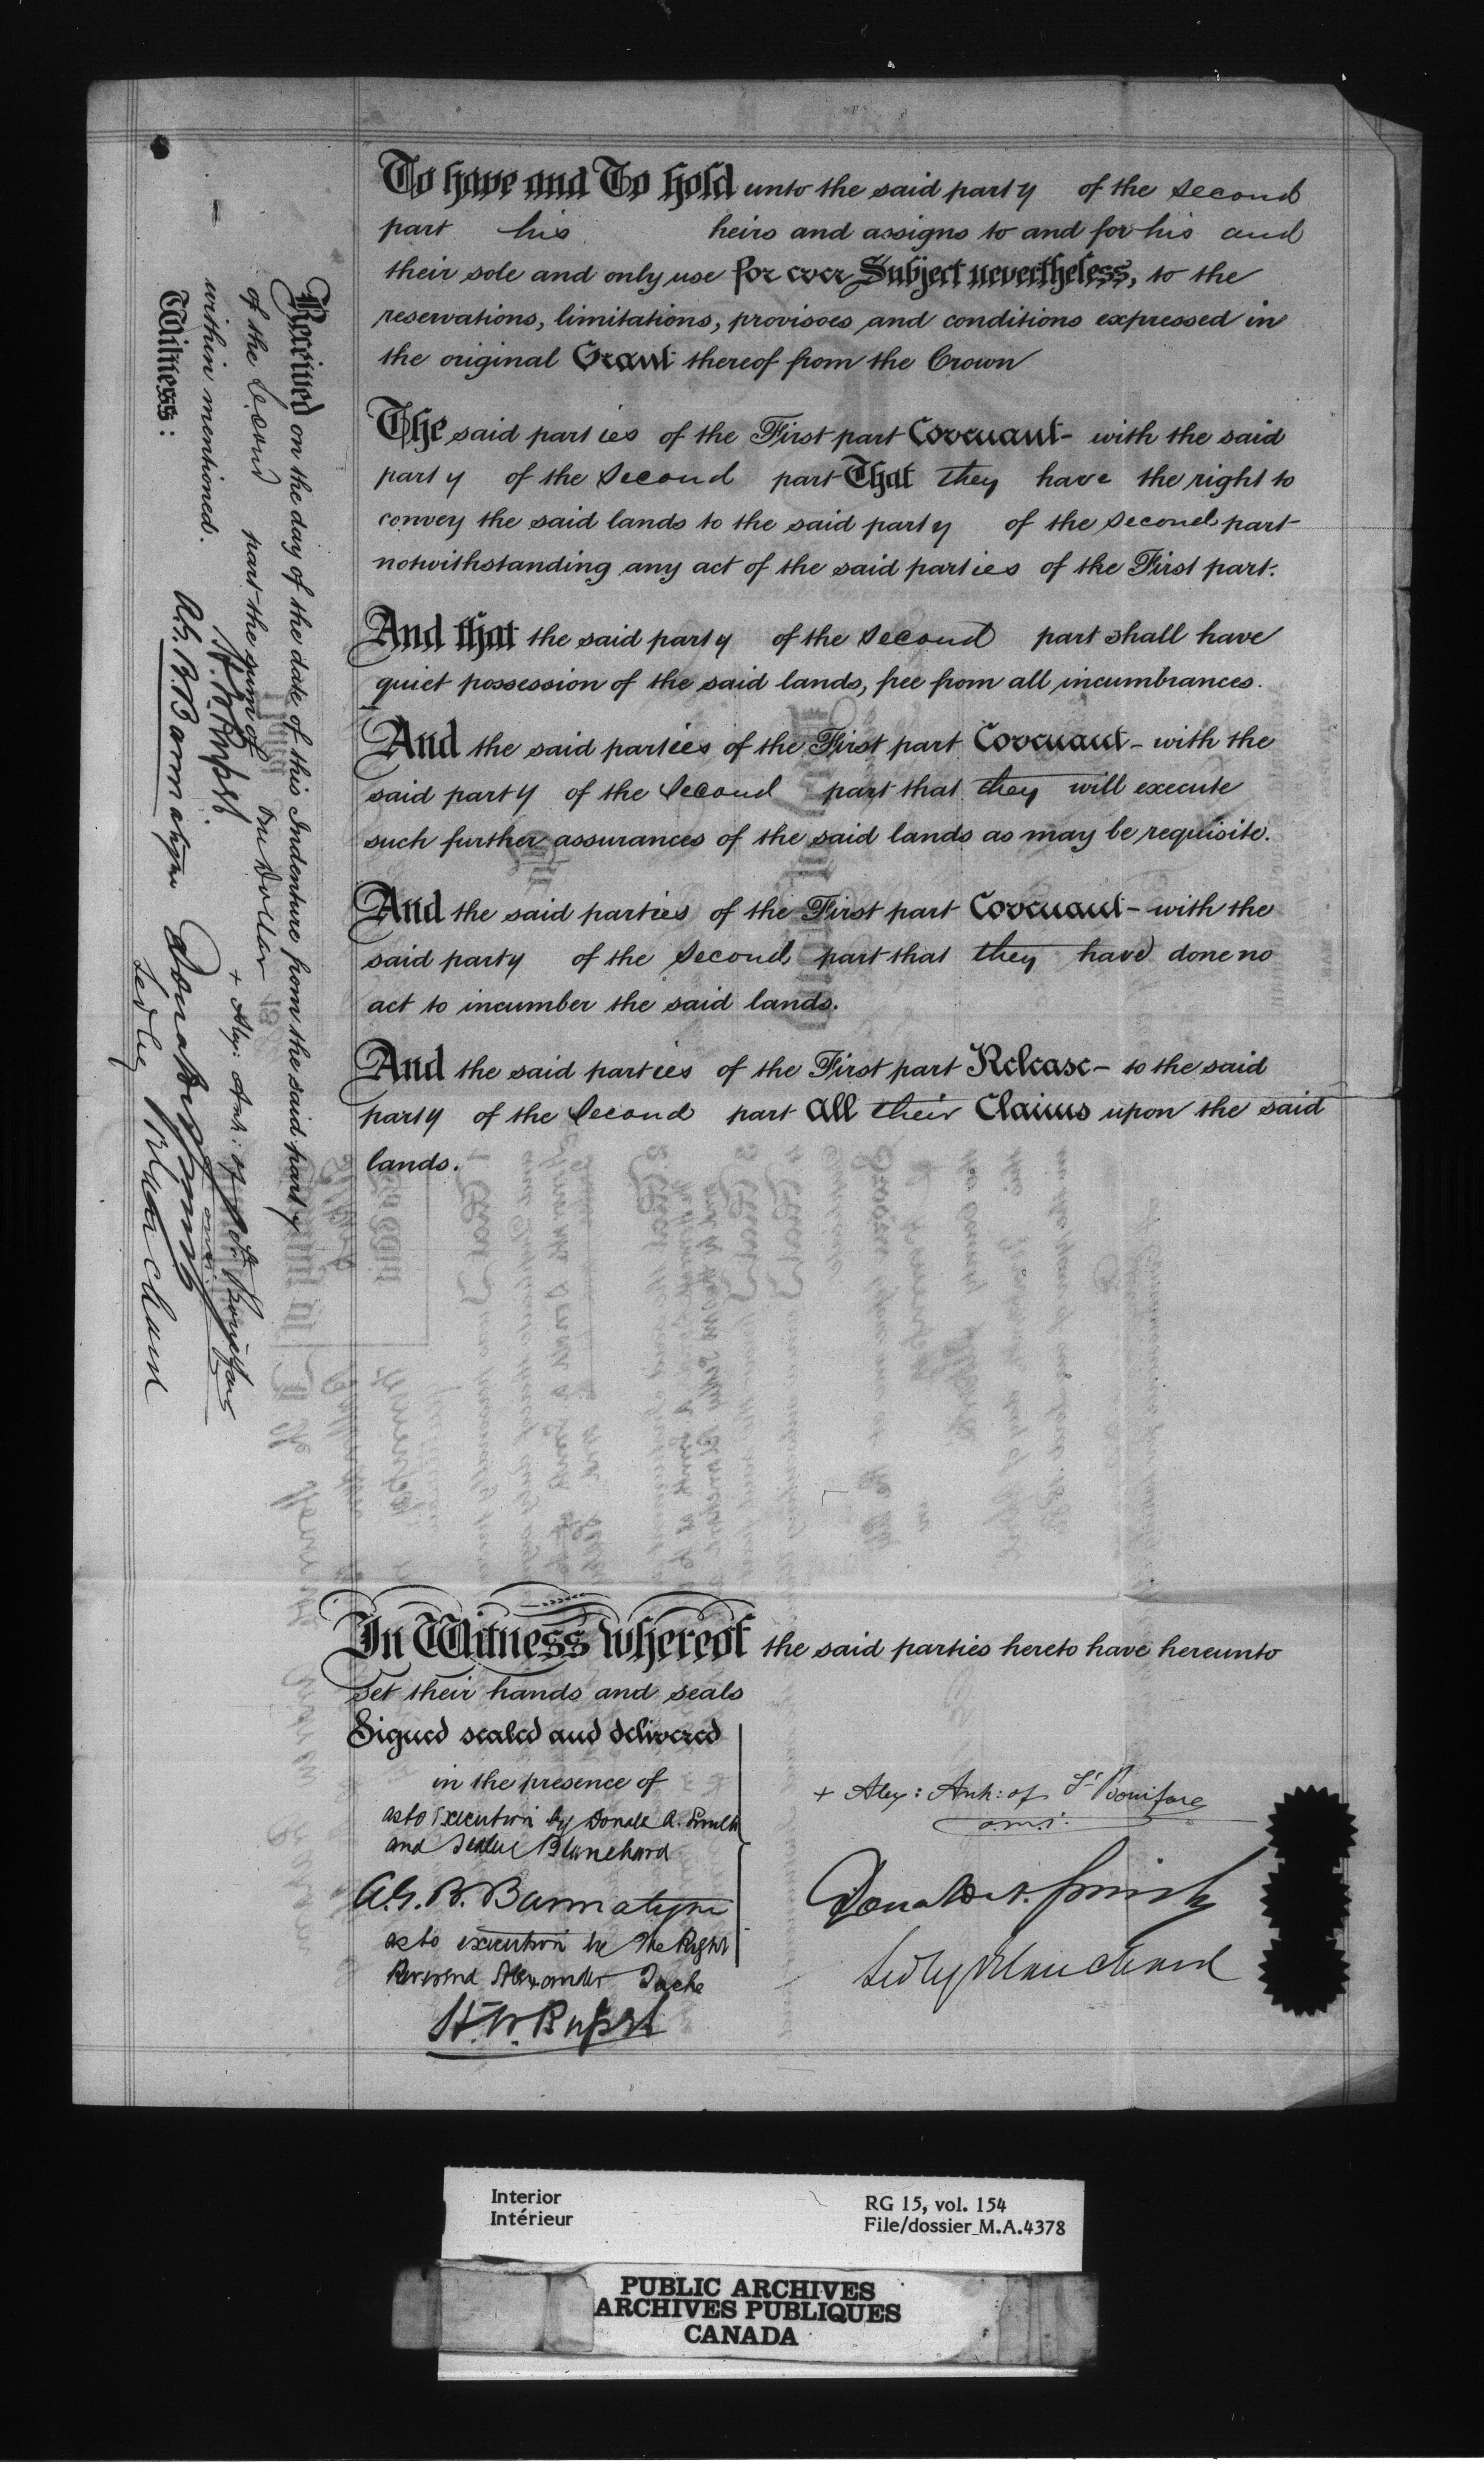 To have and To hold unto the said party of the Second
part his heirs and assigns to and for his and
their sole and only use for ever Subject nevertheless, to the
reservations, limitations, provisoes and conditions expressed in
the original Grant thereof from the Crown
The said parties of the First part Covenant - with the said
party of the Second part That they have the right to
convey the said lands to the said party of the Second part
notwithstanding any act of the said parties of the First part.
And that the said party of the Second part shall have
quiet possession of the said lands, free from all incumbrances.
And the said parties of the First part Covenant - with the
said party of the Second part that they will execute
such further assurances of the said lands as may be requisite.
And the said parties of the First part Covenant - with the
said party of the Second part that they have done no
act to incumber the said lands.
And the said parties of the First part Release - to the said
party of the Second part All their Claims upon the said
lands.
In Witness whereof the said parties hereto have hereunto
set their hands and seals
Signed sealed and delivered
in the presence of
as to execution by Donald A. Smith
and Sedley Blanchard
A.G.B. Bannatyne
as to execution by The Right
Reverend Alexander Tache
+ Alex: Arch: of St Boniface
o.m.i.
Donald A. Smith
Sedley Blanchard
Received on the day of the date of this Indenture from the said party
of the Second part the sum of One Dollar
within mentioned.
Witness:
A.G.B. Bannatyne
+ Alex: Arch: of St Boniface
o.m.i.
Donald A. Smith
Sedley Blanchard
Interior
Intérieur
RG 15, vol. 154
File/dossier M.A.4378
PUBLIC ARCHIVES
ARCHIVES PUBLIQUES
CANADA